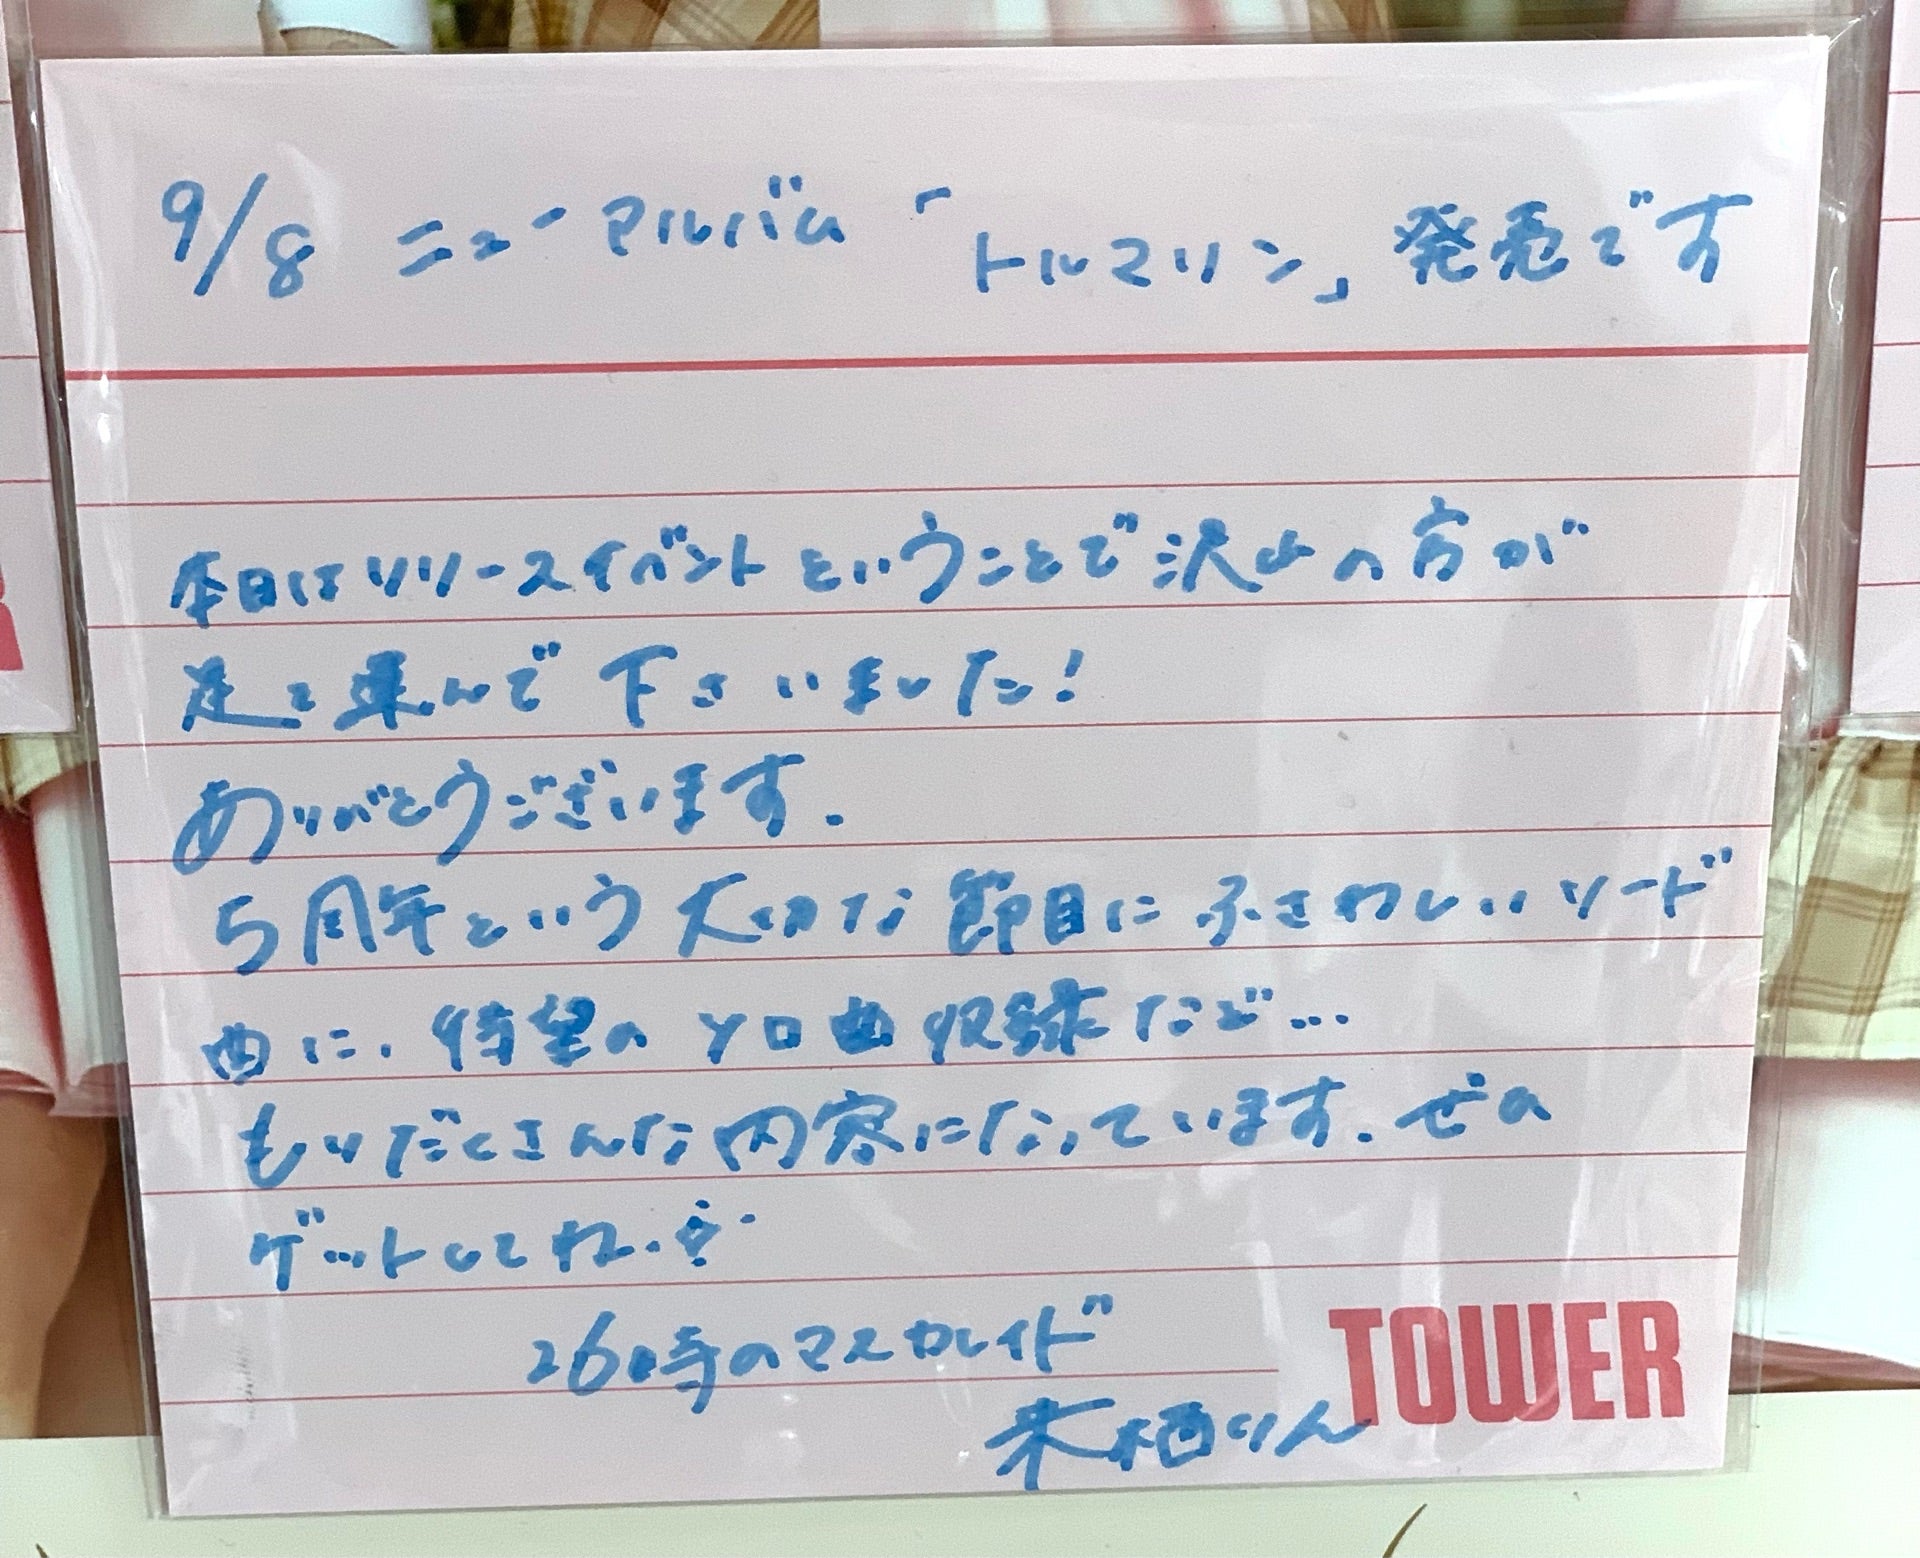 9/8 ニューアルバム「トルマリン」発売です
本日はリリースイベントということで沢山の方が
足を運んで下さいました!
ありがとうございます.
5周年という大切な節目にふさわしいリード
曲に、待望のソロ曲収録など...
もりだくさんな内容になっています. ぜひ
ゲットしてね
26時のマスカレイド
来栖りん
TOWER